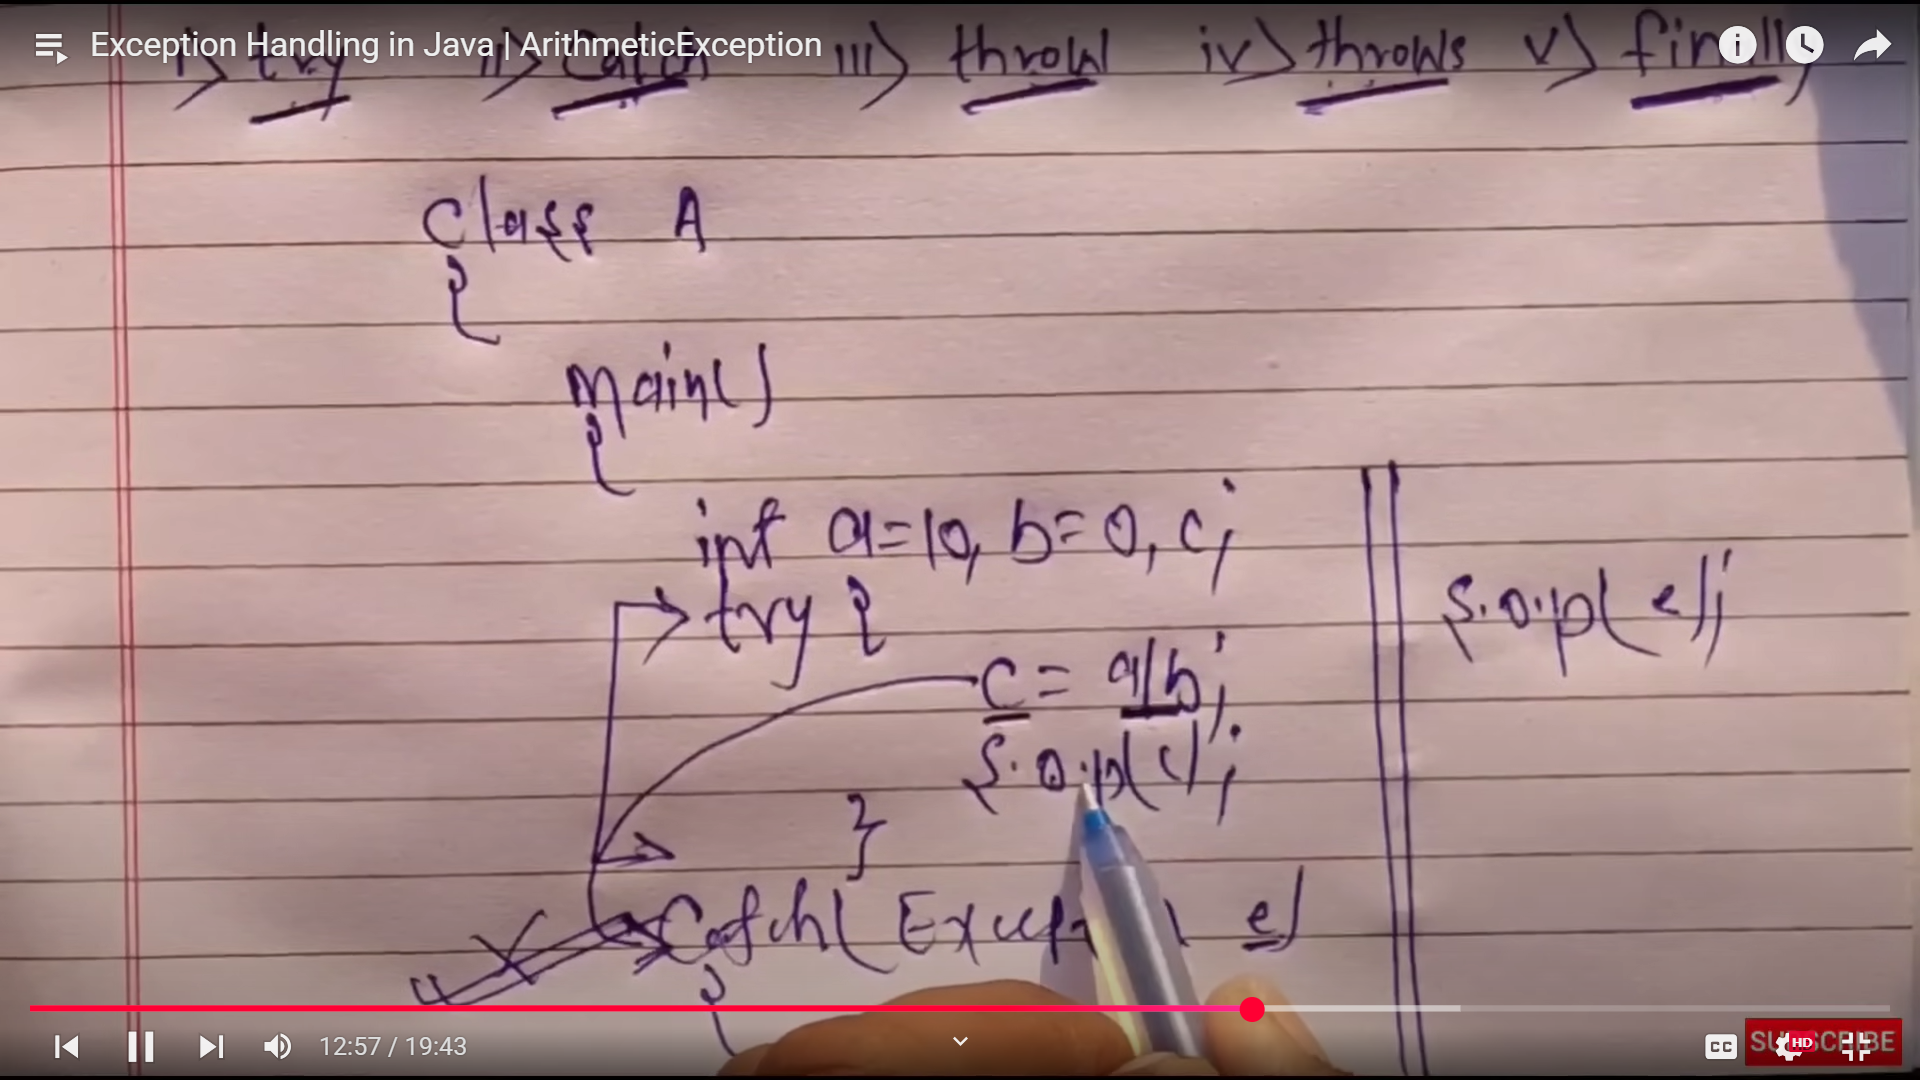 Exception Handling in Java | ArithmeticException
i) try ii) catch iii) throw iv) throws v) finally
Class A
{
main()
{
int a=10, b=0, c;
try {
c = a/b;
S.o.p(c);
}
Catch( e)
{
S.o.p(e);
12:57 / 19:43
CC
HD
SUBSCRIBE